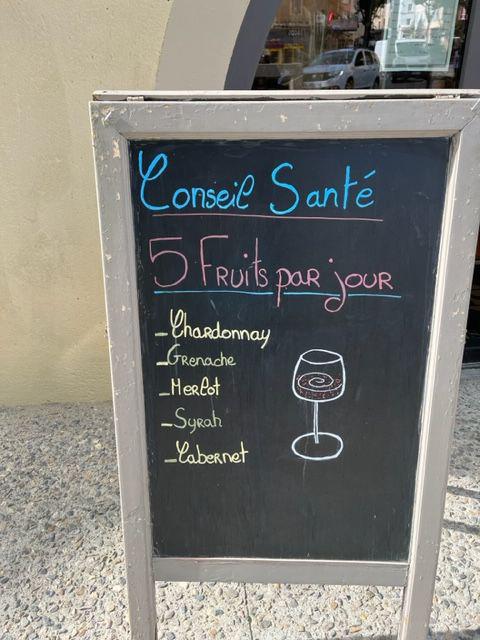 Conseil Santé
5 Fruits par jour
- Chardonnay
- Grenache
- Merlot
- Syrah
- Cabernet